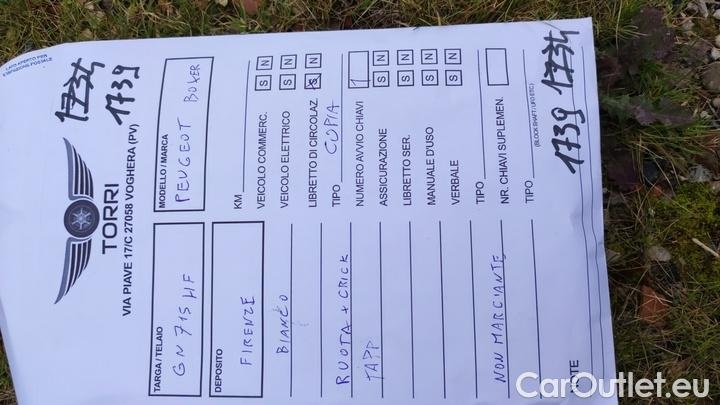 LATO APERTO PER
ISPEZIONE POSTALE
1734
1739
TORRI
VIA PIAVE 17/C 27058 VOGHERA (PV)
TARGA / TELAIO
GN 715 HF
MODELLO / MARCA
PEUGEOT BOXER
DEPOSITO
FIRENZE
KM
BIANCO
VEICOLO COMMERC. S N
VEICOLO ELETTRICO S N
RUOTA + CRICK
LIBRETTO DI CIRCOLAZ S N
TIPO COPIA
NUMERO AVVIO CHIAVI 1
ASSICURAZIONE S N
LIBRETTO SER. S N
MANUALE D'USO S N
VERBALE S N
TIPO
NON MARCIANTE
NR. CHIAVI SUPLEMEN.
TIPO
(BLOCK SHAFT / UFO ETC)
1739 1734
CarOutlet.eu